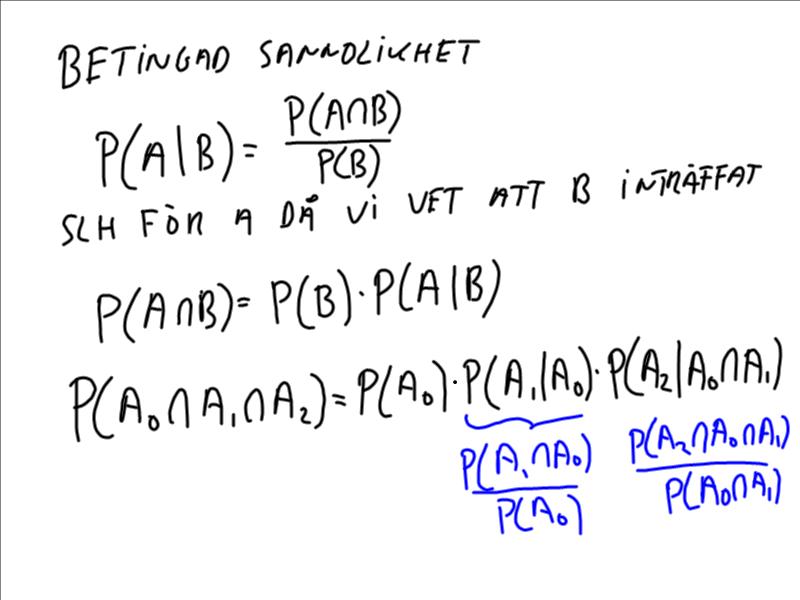 BETINGAD SANNOLIKHET
P(A|B) = P(A∩B) / P(B)
SLH FÖR A DÅ VI VET ATT B INTRÄFFAT
P(A∩B) = P(B) · P(A|B)
P(A₀∩A₁∩A₂) = P(A₀) · P(A₁|A₀) · P(A₂|A₀∩A₁)
P(A₁∩A₀) / P(A₀) P(A₂∩A₀∩A₁) / P(A₀∩A₁)